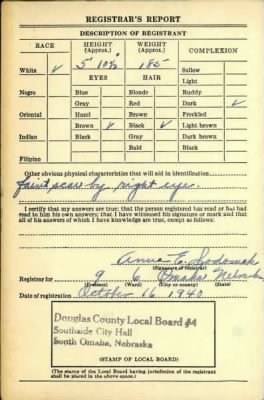 REGISTRAR'S REPORT
DESCRIPTION OF REGISTRANT
RACE HEIGHT (Approx.) WEIGHT (Approx.) COMPLEXION
White ✓ 5' 10½" 185 Sallow
EYES HAIR Light
Negro Blue Blonde Ruddy
Gray Red Dark ✓
Oriental Hazel Brown Freckled
Brown ✓ Black ✓ Light brown
Indian Black Gray Dark brown
Bald Black
Filipino
Other obvious physical characteristics that will aid in identification
faint scar by right eye.
I certify that my answers are true; that the person registered has read or has had
read to him his own answers; that I have witnessed his signature or mark and that
all of his answers of which I have knowledge are true, except as follows:
Anna E.
(Signature of registrar)
Registrar for 9 6 Omaha Nebraska
(Precinct) (Ward) (City or county) (State)
Date of registration October 16 1940
Douglas County Local Board #4
Southside City Hall
South Omaha, Nebraska
(STAMP OF LOCAL BOARD)
(The stamp of the Local Board having jurisdiction of the registrant
shall be placed in the above space.)